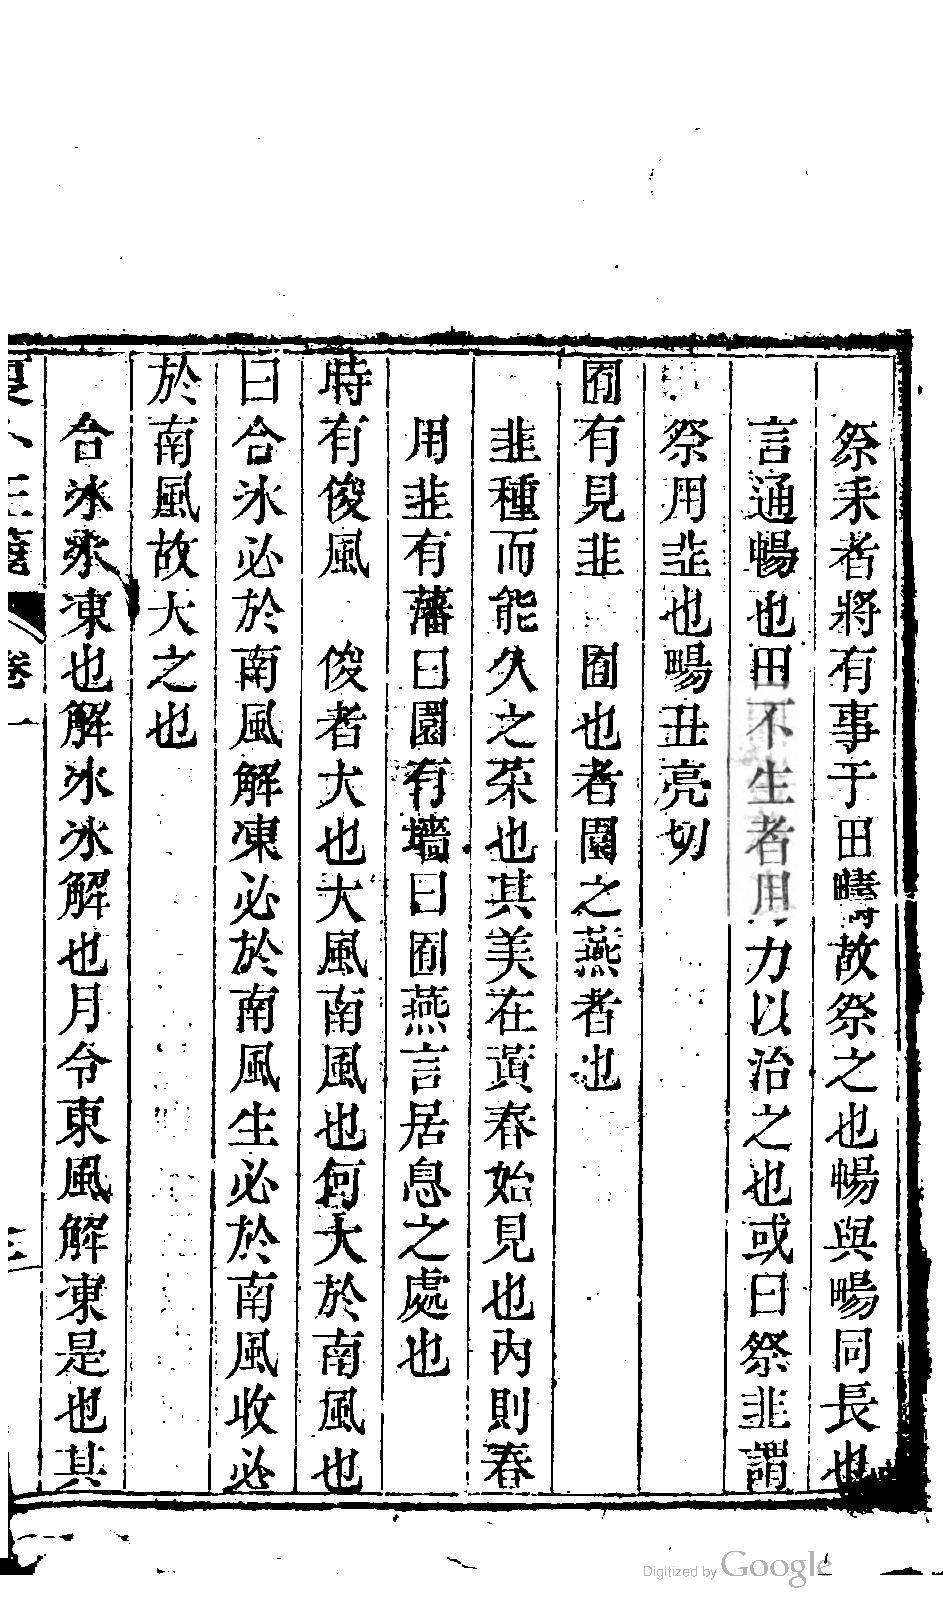 祭耒者將有事于田疇故祭之也暢與畼同長也
言通暢也田不生者用力以治之也或曰祭韭謂
祭用韭也畼丑亮切
囿有見韭　囿也者園之燕者也
韭種而能久之菜也其美在黃春始見也內則春
用韭有藩曰園有墻曰囿燕言居息之處也
時有俊風　俊者大也大風南風也何大於南風也
曰合冰必於南風解凍必於南風生必於南風收必
於南風故大之也
合冰冰凍也解冰冰解也月令東風解凍是也其
夏小正箋　卷一　三
Digitized by Google